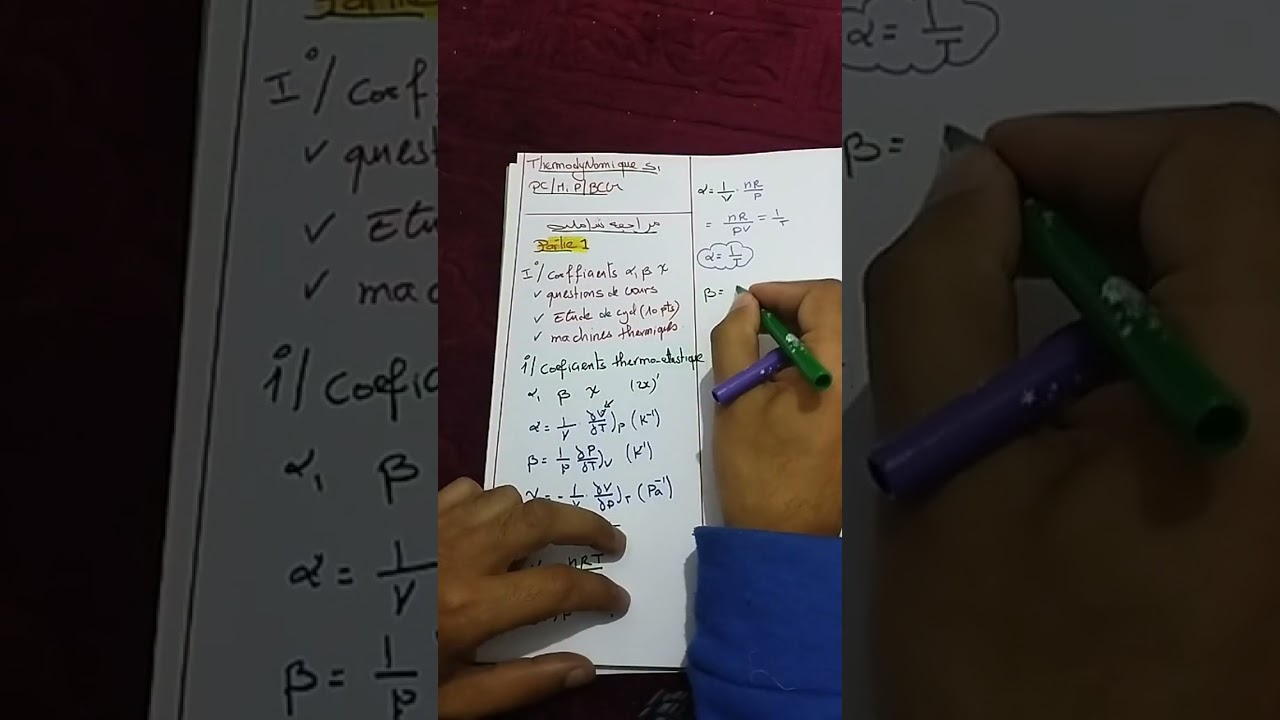 ThermodyNamique S1
PC/M.P/BCG
مراجعة شاملة
Partie 1
I°/ coeffients α, β χ
✓ questions de cours
✓ Etude de cycl (10 pts)
✓ machines thermiques
i°/ coeficients thermo-elastique
α, β χ (2x)'
α = 1/V · ∂V/∂T)P (K⁻¹)
β = 1/P ∂P/∂T)V (K⁻¹)
χ = - 1/V · ∂V/∂P)T (Pa⁻¹)
nRT
α = 1/V · nR/P
= nR/PV = 1/T
α = 1/T
β =